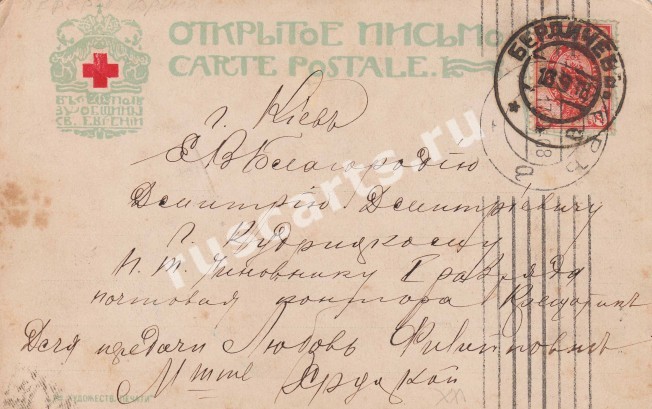 ОТКРЫТОЕ ПИСЬМО
CARTE POSTALE.
ВЪ ПОЛЬЗУ ОБЩИНЫ
СВ. ЕВГЕНІИ
БЕРДИЧЕВЪ
г. Кіевъ
Е В Благородію
Дмитрію Дмитріевичу
г. Кудрицкому
П. Т. Чиновнику I разряда
почтовая контора Крещатикъ
Для передачи Любовь Филипповнѣ
ruscarts.ru
ХУДОЖЕСТВ. ПЕЧАТИ